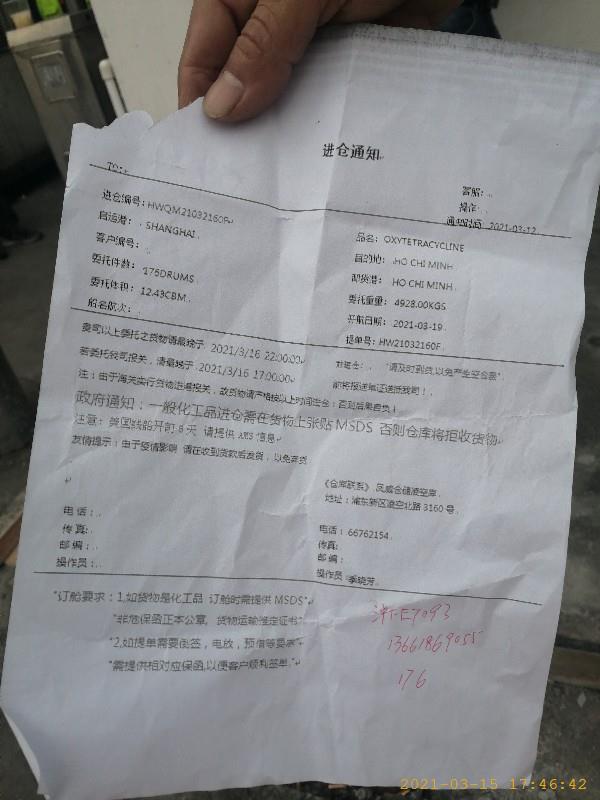 进仓通知
TO:
客服:
操作:
通知时间: 2021-03-12
进仓编号: HWQM21032160F
品名: OXYTETRACYCLINE
启运港: SHANGHAI
目的地: HO CHI MINH
客户编号:
卸货港: HO CHI MINH
委托件数: 176DRUMS
委托重量: 4928.00KGS
委托体积: 12.43CBM
开航日期: 2021-03-19
船名航次:
提单号: HW21032160F
贵司以上委托之货物请最晚于 2021/3/16 22:00:00 前进仓: "请及时到货,以免产生空仓费"
若委托我司报关,请最晚于 2021/3/16 17:00:00 前将报送单证送抵我司!
注:由于海关实行货物进港报关,故货物请严格按以上时间进仓!否则后果自负!
政府通知:一般化工品进仓需在货物上张贴 MSDS 否则仓库将拒收货物
注意:美国线船开前 8 天 请提供 AMS 信息
友情提示:由于疫情影响 请在收到货款后发货,以免弃货
《仓库联系》凤威仓储凌空库
地址:浦东新区凌空北路 3160 号
电话:
电话: 66762154
传真:
传真:
邮编:
邮编:
操作员:
操作员:季晓芳
"订舱要求:1.如货物是化工品 订舱时需提供 MSDS"
"非危保函正本公章,货物运输鉴定证书"
"2.如提单需要倒签,电放,预借等要求"
"需提供相对应保函,以便客户顺利签单."
沪FE7093
13661869055
176
2021-03-15 17:46:42